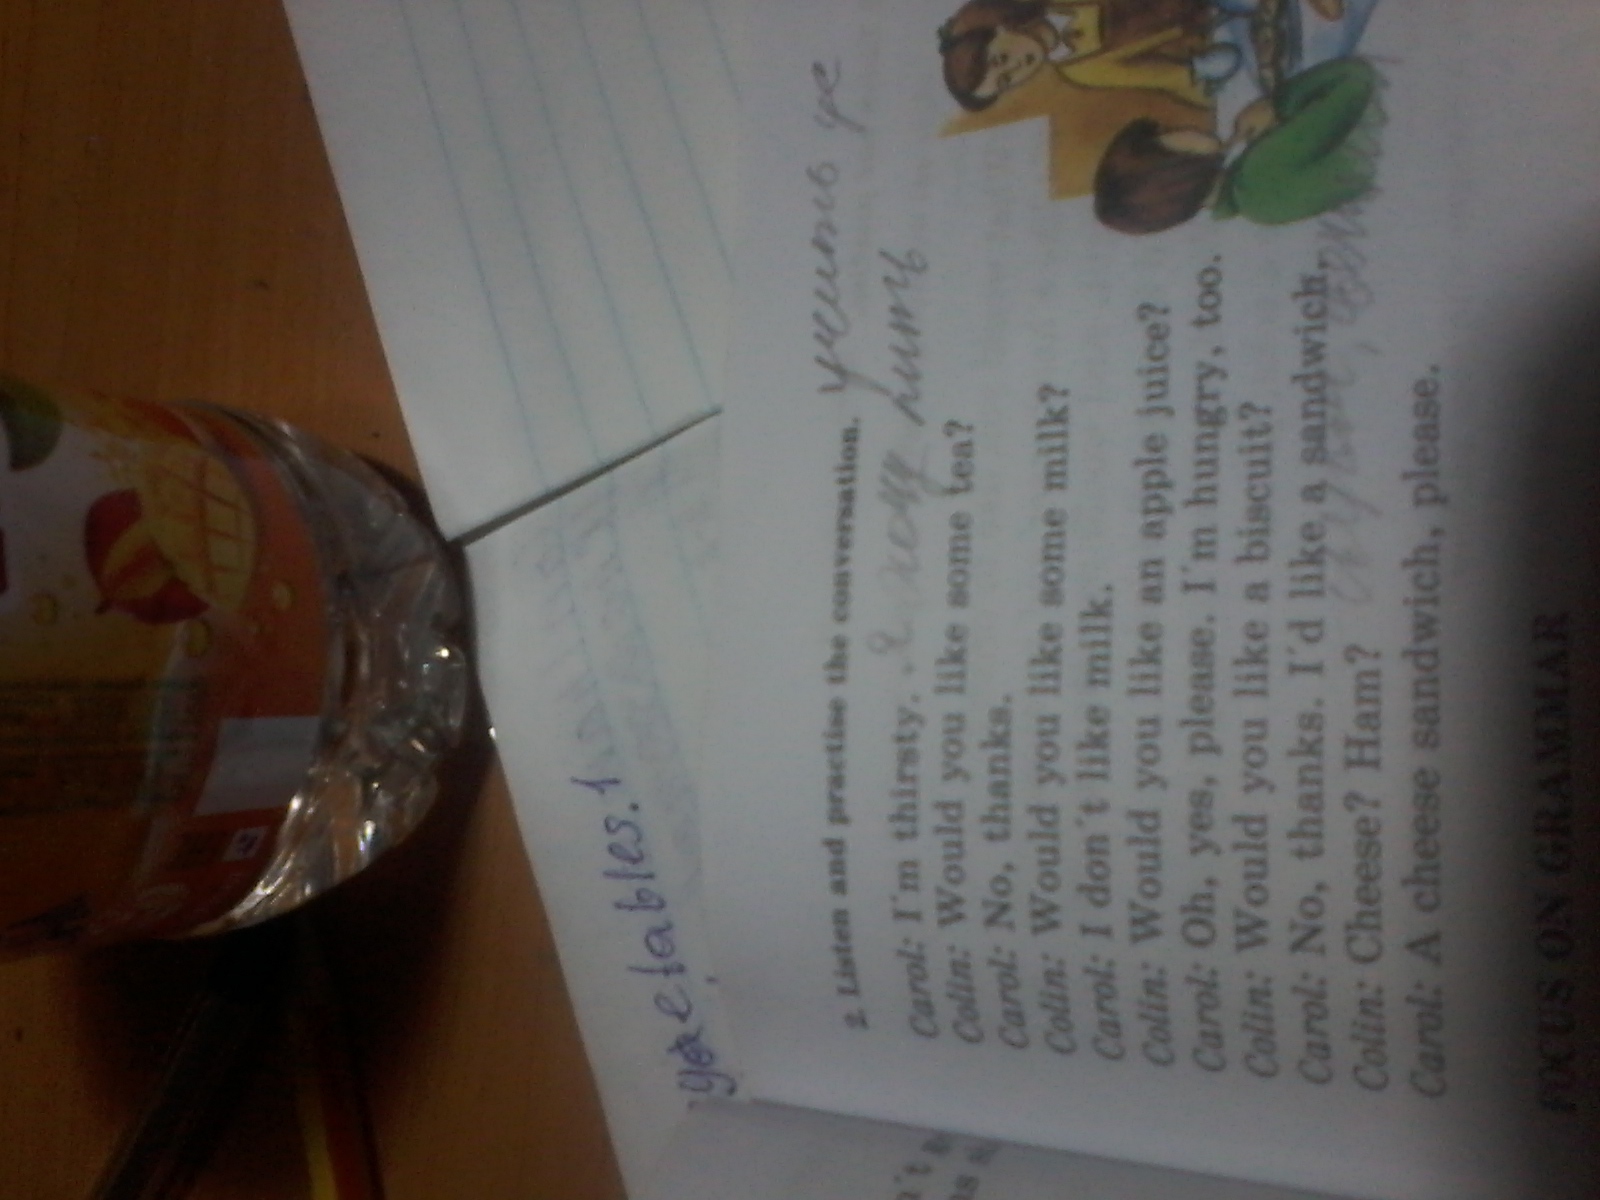 vegetables.
2. Listen and practise the conversation. учить
Carol: I'm thirsty. Я хочу пить
Colin: Would you like some tea?
Carol: No, thanks.
Colin: Would you like some milk?
Carol: I don't like milk.
Colin: Would you like an apple juice?
Carol: Oh, yes, please. I'm hungry, too.
Colin: Would you like a biscuit?
Carol: No, thanks. I'd like a sandwich.
Colin: Cheese? Ham?
Carol: A cheese sandwich, please.
FOCUS ON GRAMMAR